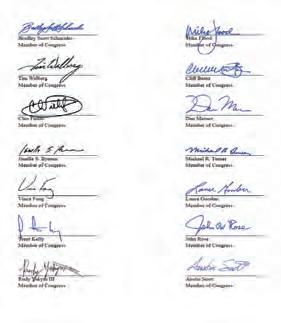 Bradley Scott Schneider
Member of Congress
Mike Flood
Member of Congress
Tim Walberg
Member of Congress
Cliff Bentz
Member of Congress
Member of Congress
Dan Meuser
Member of Congress
Member of Congress
Michael R. Turner
Member of Congress
Vince Fong
Member of Congress
Member of Congress
Trent Kelly
Member of Congress
John Rose
Member of Congress
Rudy Yakym III
Member of Congress
Austin Scott
Member of Congress